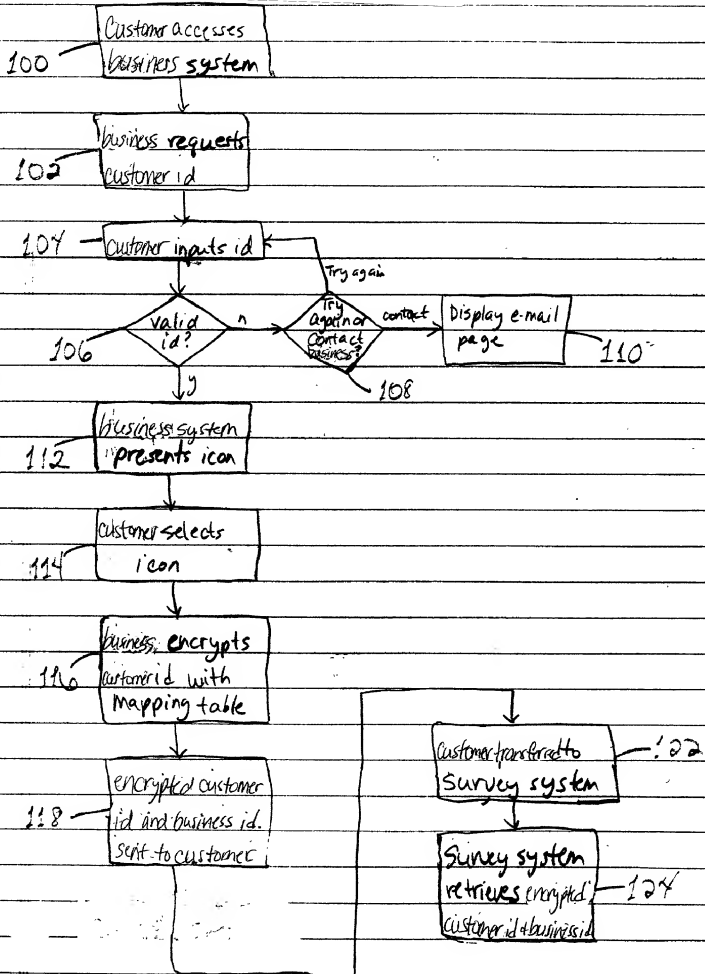 Customer accesses
business system
100
business requests
customer id
102
customer inputs id
104
Try again
valid
id?
106
n
y
Try
again or
contact
business?
108
contact
Display e-mail
page
110
business system
presents icon
112
customer selects
icon
114
business encrypts
customer id with
mapping table
116
encrypted customer
id and business id
sent to customer
118
customer transferred to
survey system
122
Survey system
retrieves encrypted
customer id + business id
124